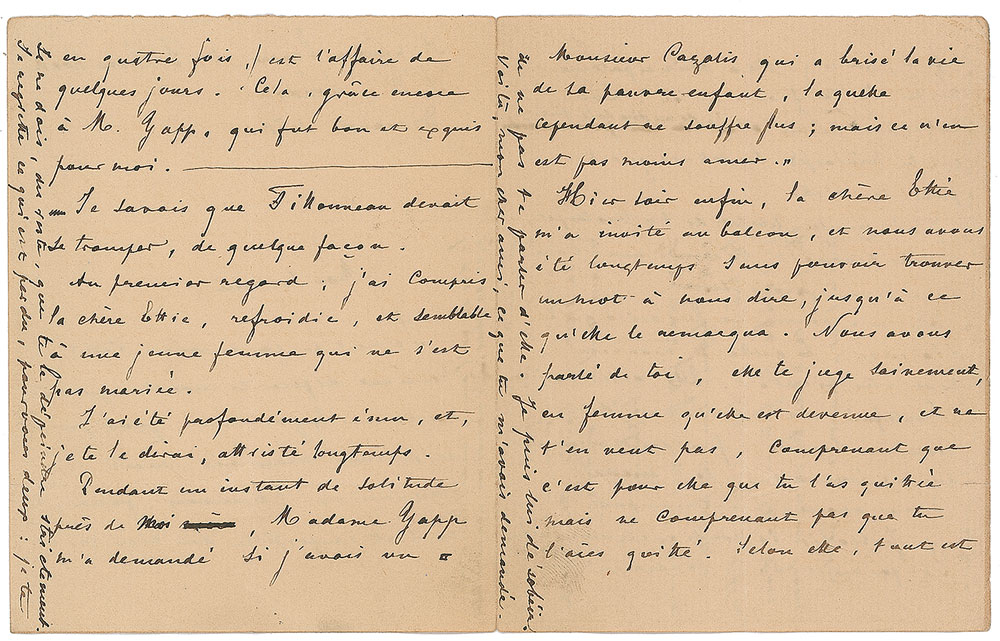 en quatre fois, est l'affaire de
quelques jours. Cela, grâce encore
à M. Yapp, qui fut bon et exquis
pour moi.
Je savais que Tillonneau devait
se tromper, de quelque façon.
Au premier regard, j'ai compris
la chère Ettie, refroidie, et semblable
à une jeune femme qui ne s'est
pas mariée.
J'ai été profondément ému, et,
je te le dirai, attristé longtemps.
Pendant un instant de solitude
près de moi, Madame Yapp
m'a demandé si j'avais vu
Monsieur Cazalis qui a brisé la vie
de sa pauvre enfant, laquelle
cependant ne souffre plus ; mais ce n'en
est pas moins amer."
Hier soir enfin, la chère Ettie
m'a invité au balcon, et nous avons
été longtemps sans pouvoir trouver
un mot à nous dire, jusqu'à ce
qu'elle le remarqua. Nous avons
parlé de toi, elle te juge sainement,
en femme qu'elle est devenue, et ne
t'en veut pas, comprenant que
c'est pour elle que tu l'as quittée
mais ne comprenant pas que tu
l'aies quitté. Selon elle, tout est
Voilà, mon cher ami, ce que tu m'avais demandé.
de ne pas te parler d'elle. Je puis lui désobéir.
Je ne dois, du reste, que te le dépeindre strictement.
Je regrette ce qui est perdu, pour vous deux : je te